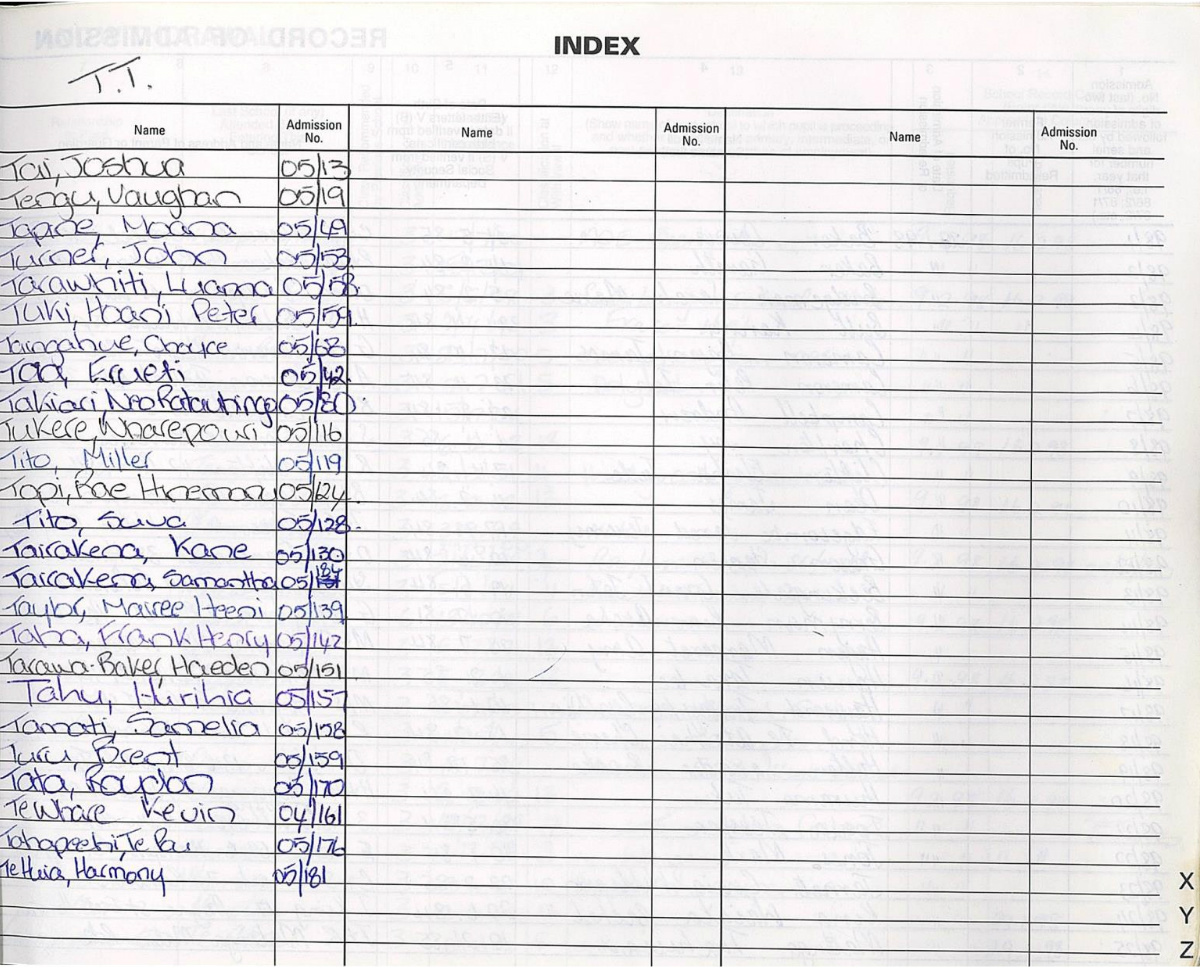 INDEX
T.T.
Name Admission No. Name Admission No. Name Admission No.
Tai, Joshua 05/13
Tengu, Vaughan 05/19
Taproe, Moana 05/49
Turner, John 05/53
Tarawhiti, Luanna 05/58
Tuhi, Hoani Peter 05/59
Taingahue, Chayce 05/63
Taa, Erueti 05/42
Takiari, Neo Ratauhinga 05/80
Tukere, Wharepouri 05/116
Tito, Miller 05/119
Topi, Rae Hinemoa 05/124
Tito, Suva 05/128
Tairakena, Kane 05/130
Tairakena, Samantha 05/184
Taylor, Mairee Heeni 05/139
Taha, Frank Henry 05/142
Tarawa-Baker, Haeden 05/151
Tahu, Hurihia 05/157
Tamati, Samelia 05/158
Turu, Brent 05/159
Tata, Roydon 05/170
TeWhare Kevin 04/161
Tahapeehi, Te Rau 05/176
Te Huia, Harmony 05/181
X
Y
Z